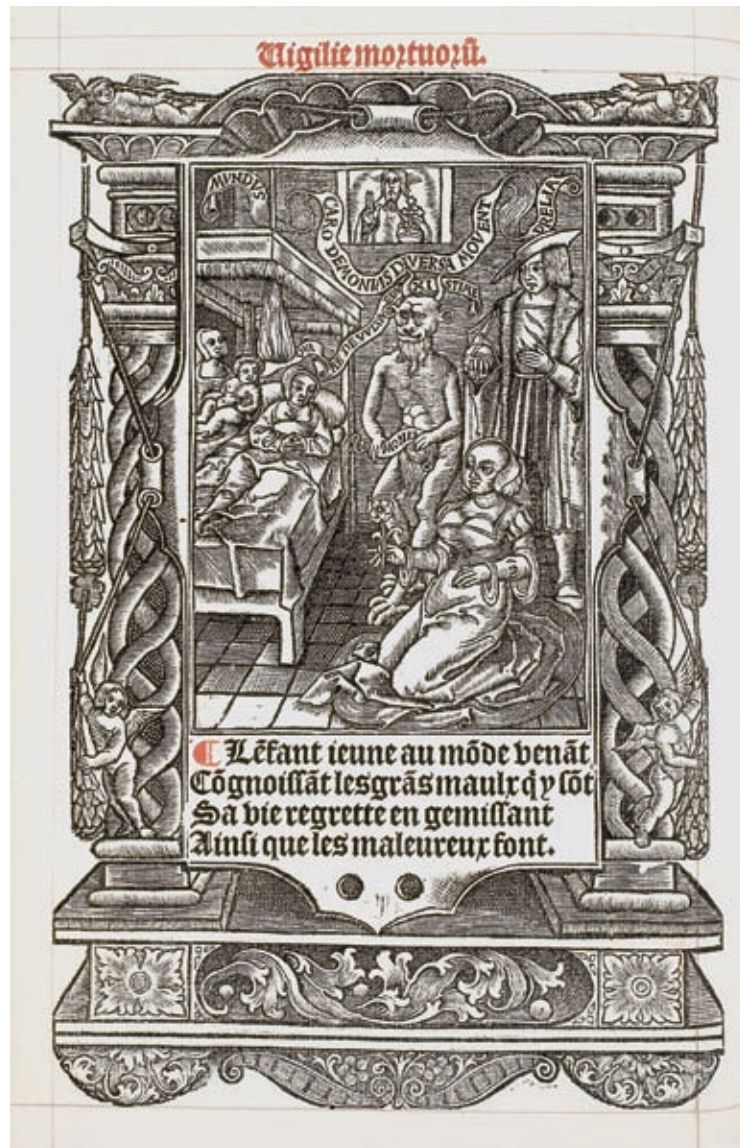 Uigilie mortuorũ.
MUNDVS
CARO DEMONIA DIVERSA MOVENT
PRELIA
DE VVEN
¶ Lẽfant ieune au mõde venãt
Cõgnoissãt lesgrãs maulx q̃ y sõt
Sa vie regrette en gemissant
Ainsi que les maleureux font.